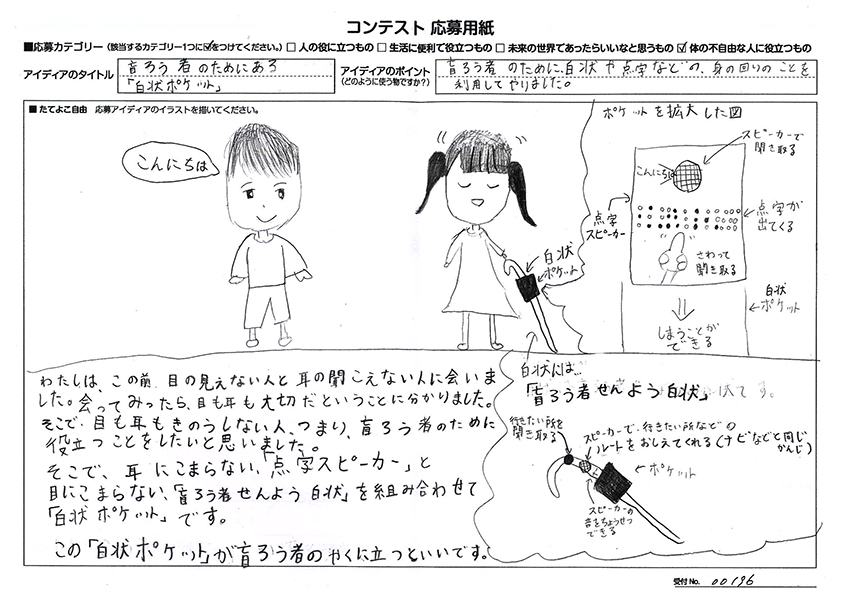 コンテスト 応募用紙
■応募カテゴリー（該当するカテゴリー1つに☑をつけてください。）□ 人の役に立つもの □ 生活に便利で役立つもの □ 未来の世界であったらいいなと思うもの ☑ 体の不自由な人に役立つもの
アイディアのタイトル
盲ろう者のためにある
「白状ポケット」
アイディアのポイント
（どのように使う物ですか？）
盲ろう者のために、白状や点字などの、身の回りのことを
利用してやりました。
■ たてよこ自由　応募アイディアのイラストを描いてください。
こんにちは
白状
ポケット
ポケットを拡大した図
スピーカーで
聞き取る
こんにちは
点字
スピーカー
点字が
出てくる
さわって
聞き取る
白状
ポケット
しまうことが
できる
わたしは、この前、目の見えない人と耳の聞こえない人に会いま
した。会ってみったら、目も耳も大切だということに分かりました。
そこで、目も耳もきのうしない人、つまり、盲ろう者のために
役立つことをしたいと思いました。
そこで、耳にこまらない、「点字スピーカー」と
目にこまらない、「盲ろう者せんよう白状」を組み合わせて
「白状ポケット」です。
この「白状ポケット」が盲ろう者のやくに立つといいです。
白状には…
「盲ろう者せんよう白状」
です。
行きたい所を
聞き取る
スピーカーで、行きたい所などの
ルートをおしえてくれる（ナビなどと同じ
かんじ）
ポケット
スピーカーの
音をちょうせつ
できる
受付No. 00196